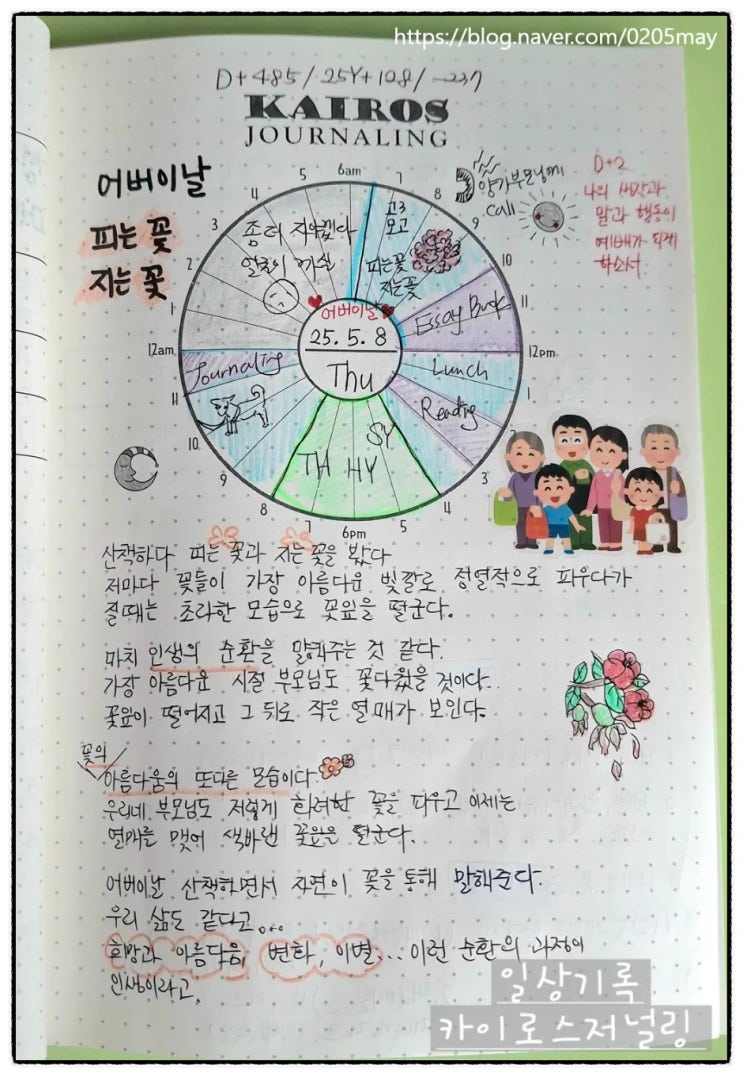 https://blog.naver.com/0205may
D+485/25Y+108/-237
KAIROS
JOURNALING
어버이날
피는 꽃
지는 꽃
양가부모님께
call
D+2
나의 생각과
말과 행동이
예배가 되게
하소서.
6am
7
8
9
10
11
12pm
1
2
3
4
5
6pm
7
8
9
10
11
12am
1
2
3
4
5
고3
모고
피는꽃
지는꽃
Essay
Lunch
Reading
SY
HY
TH
Journaling
어버이날
25. 5. 8
Thu
산책하다 피는 꽃과 지는 꽃을 봤다
저마다 꽃들이 가장 아름다운 빛깔로 정열적으로 피우다가
질때는 초라한 모습으로 꽃잎을 떨군다.
마치 인생의 순환을 말해주는 것 같다.
가장 아름다운 시절 부모님도 꽃다웠을 것이다.
꽃잎이 떨어지고 그 뒤로 작은 열매가 보인다.
꽃의
아름다움의 또다른 모습이다.
우리네 부모님도 저렇게 화려한 꽃을 피우고 이제는
열매를 맺어 색바랜 꽃잎은 떨군다.
어버이날 산책하면서 자연이 꽃을 통해 말해준다.
우리 삶도 같다고...
희망과 아름다움, 변화, 이별... 이런 순환의 과정이
인생이라고.
일상기록
카이로스저널링